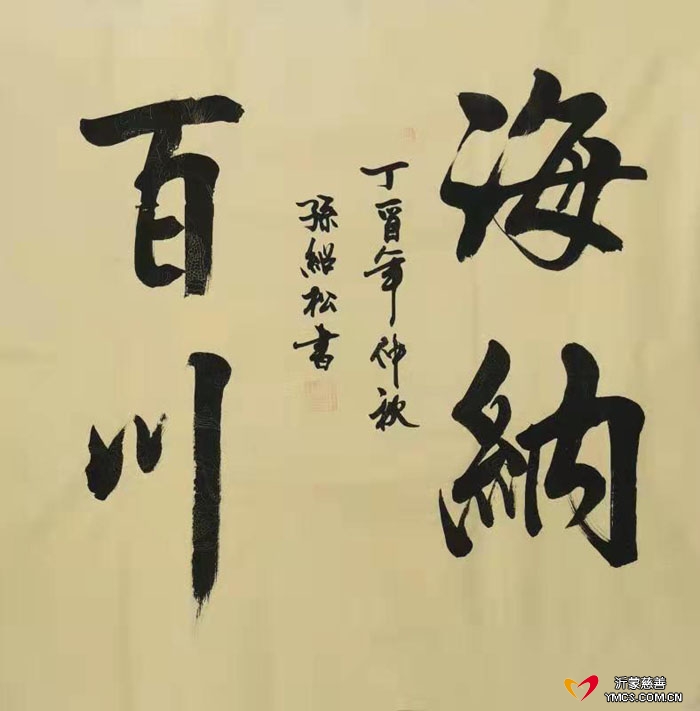 海納
百川
丁酉年仲秋
孫紹松書
沂蒙慈善
YMCS.COM.CN